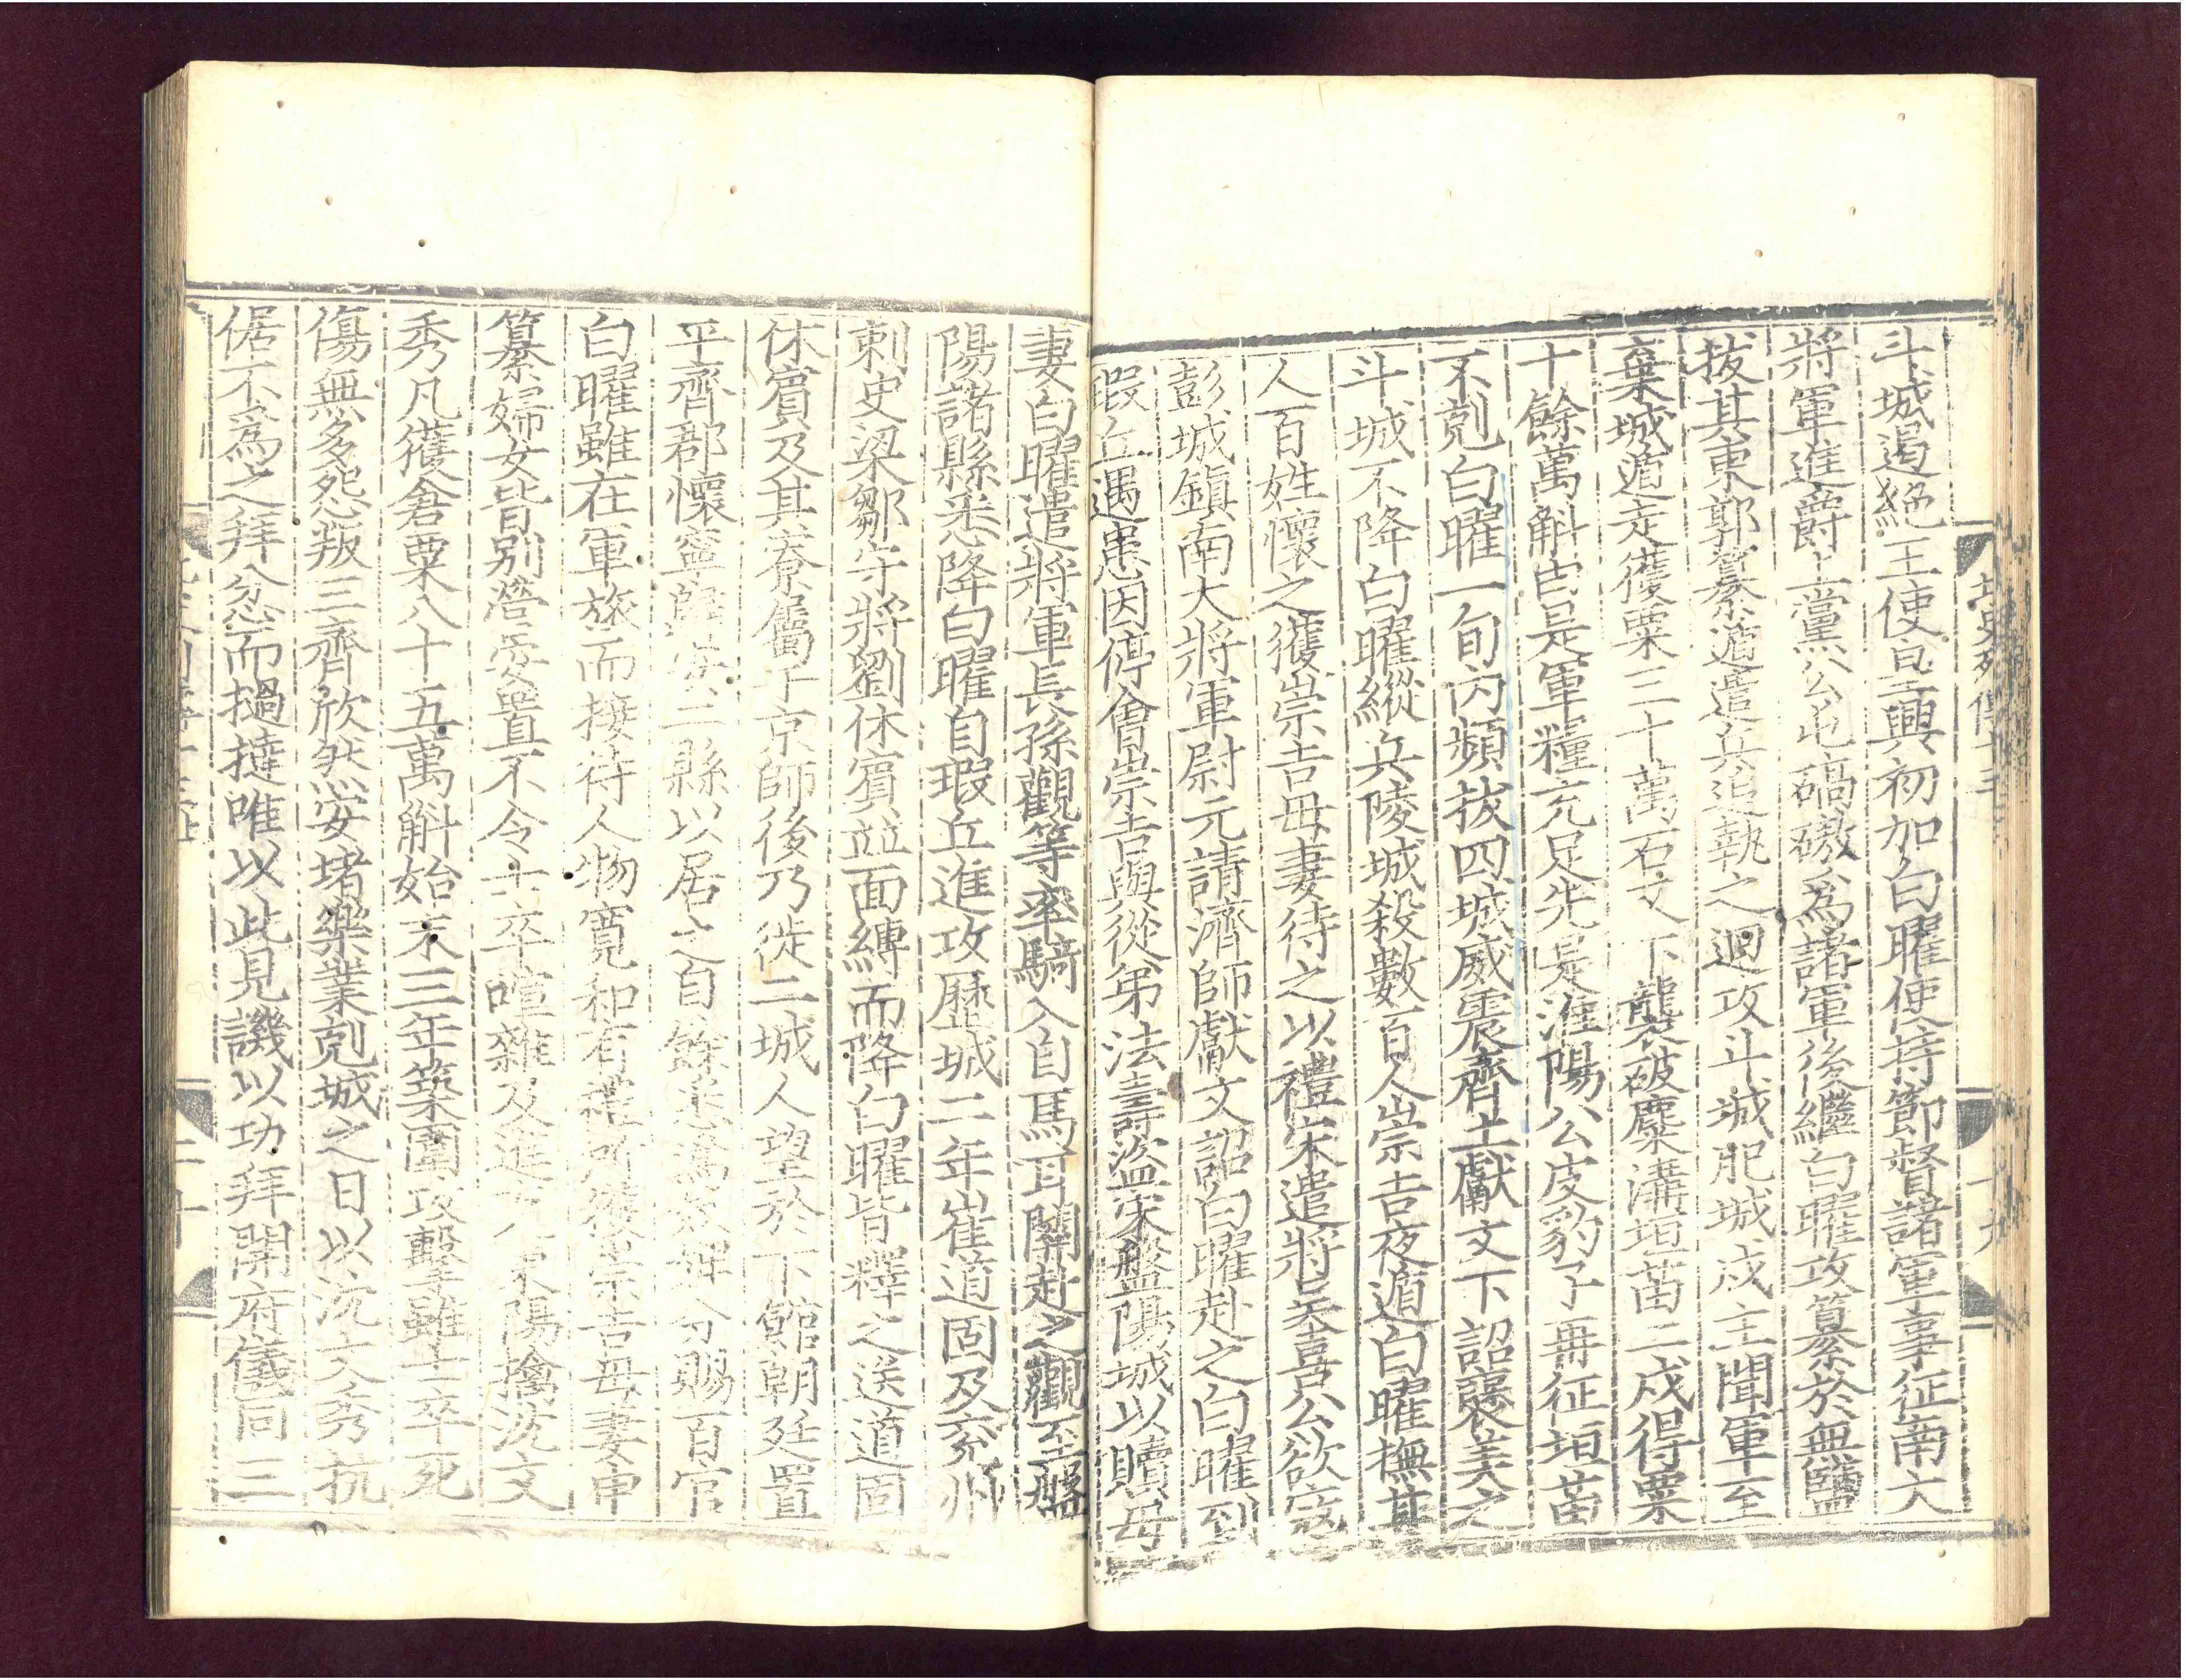 斗城遏絶王使皇興初加白曜使持節督諸軍事征南大
將軍進爵上黨公屯碻磝爲諸軍後繼白曜攻簒於無鹽
拔其東郭簒遁遣兵追執之迴攻斗城肥城戍主聞軍至
棄城遁走獲粟三十萬石又下襲破麋溝垣苗二戍得粟
十餘萬斛由是軍糧充足先是淮陽公皮豹子再征垣苗
不剋白曜一旬内頻拔四城威震齊土獻文下詔襃美之
斗城不降白曜縱兵陵城殺數百人崇吉夜遁白曜撫其
人百姓懷之獲崇吉母妻待之以禮宋遣將吳喜公欲寇
彭城鎮南大將軍尉元請濟師獻文詔白曜赴之白曜到
瑕丘遇患因停會崇吉與從弟法壽盜宋盤陽城以贖母
妻白曜遣將軍長孫觀等率騎入自馬耳關赴之觀至盤
陽諸縣悉降白曜自瑕丘進攻歷城二年崔道固及兖州
刺史梁鄒守將劉休賓並面縛而降白曜皆釋之送道固
休賓及其寮屬于京師後乃徙二城人望於下館朝廷置
平齊郡懷寧歸安二縣以居之自餘悉爲奴婢分賜百官
白曜雖在軍旅而接待人物寬和有禮所獲崇吉母妻申
簒婦女皆别營安置不令士卒喧雜及進 東陽擒沈文
秀凡獲倉粟八十五萬斛始末三年築圍攻擊雖士卒死
傷無多怨叛三齊欣然安堵樂業剋城之日以沈文秀抗
倨不爲之拜忿而撾撻唯以此見譏以功拜開府儀同三
北史列傳十三
十九
二十